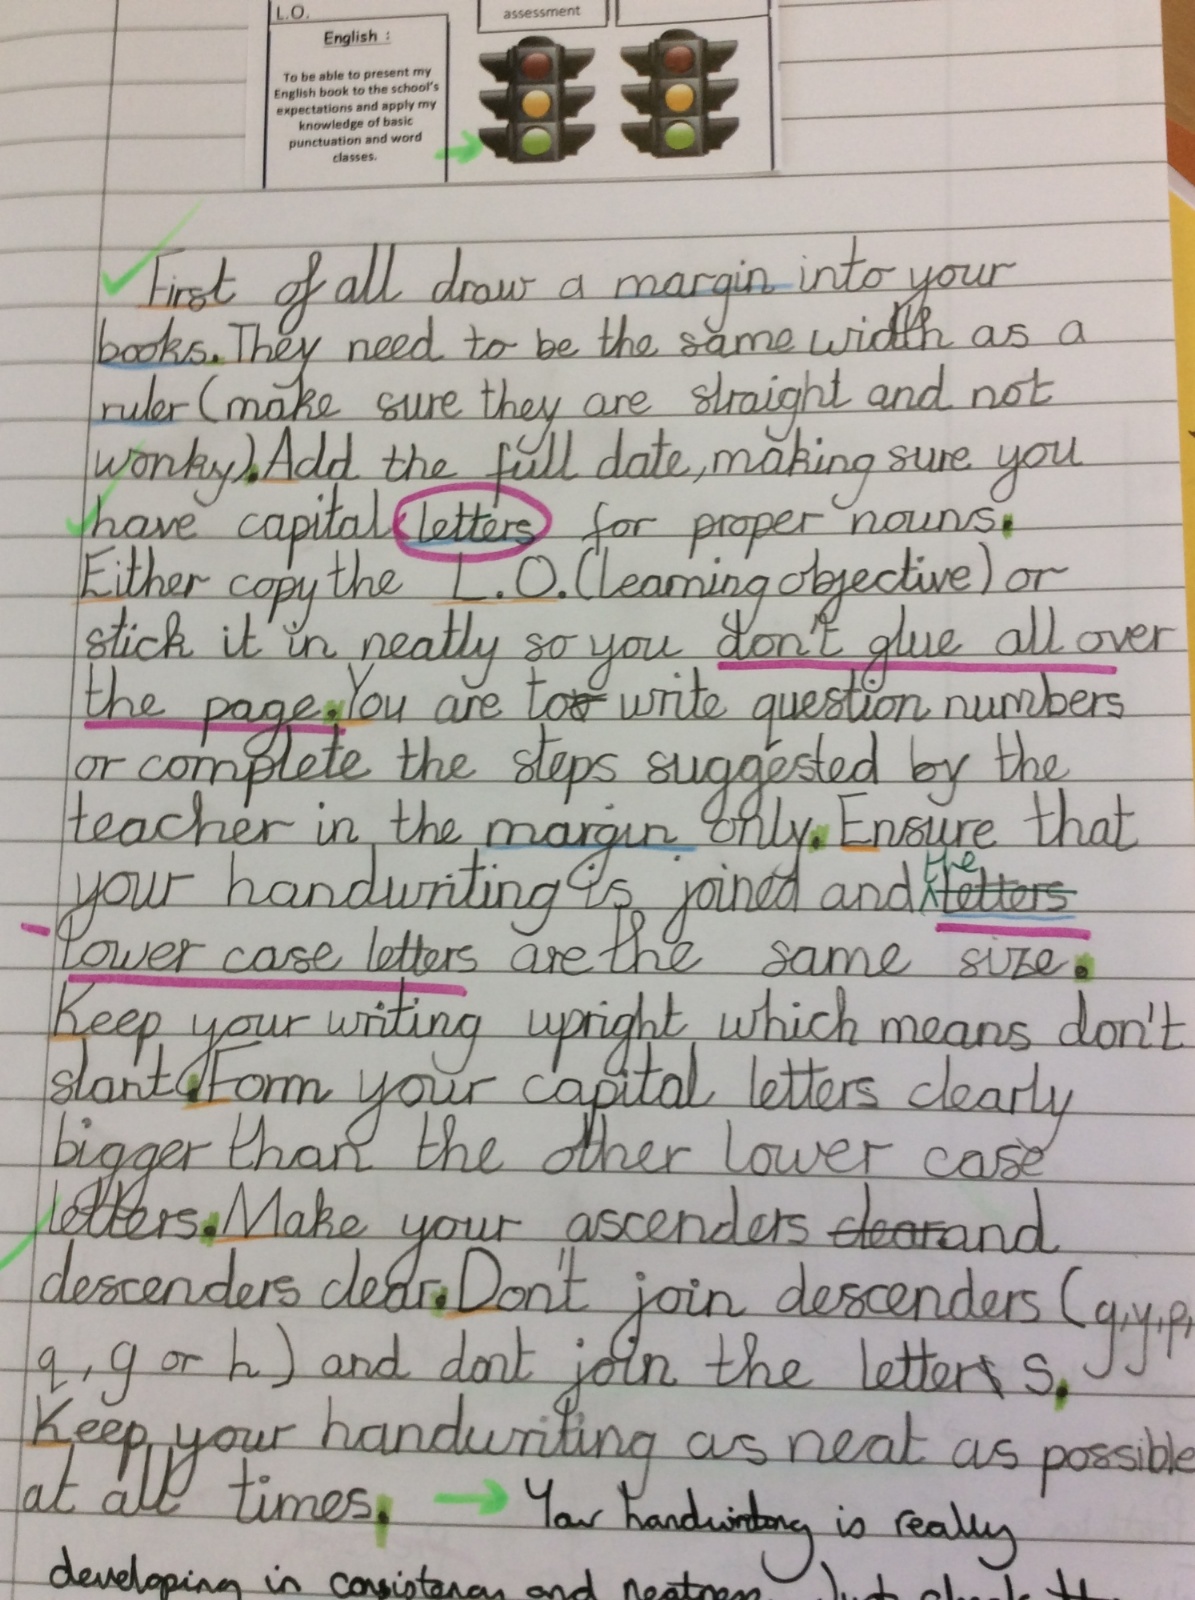 L.O.
English :
To be able to present my
English book to the school's
expectations and apply my
knowledge of basic
punctuation and word
classes.
assessment
First of all draw a margin into your
books. They need to be the same width as a
ruler (make sure they are straight and not
wonky). Add the full date, making sure you
have capital letters for proper nouns.
Either copy the L.O. (learning objective) or
stick it in neatly so you don't glue all over
the page. You are to write question numbers
or complete the steps suggested by the
teacher in the margin only. Ensure that
your handwriting is joined and the letters
lower case letters are the same size.
Keep your writing upright which means don't
slant. Form your capital letters clearly
bigger than the other lower case
letters. Make your ascenders clear and
descenders clear. Don't join descenders (g,y,p,
q, g or h) and dont join the letter s.
Keep your handwriting as neat as possible
at all times. Your handwriting is really
developing in consistency and neatness. Just check